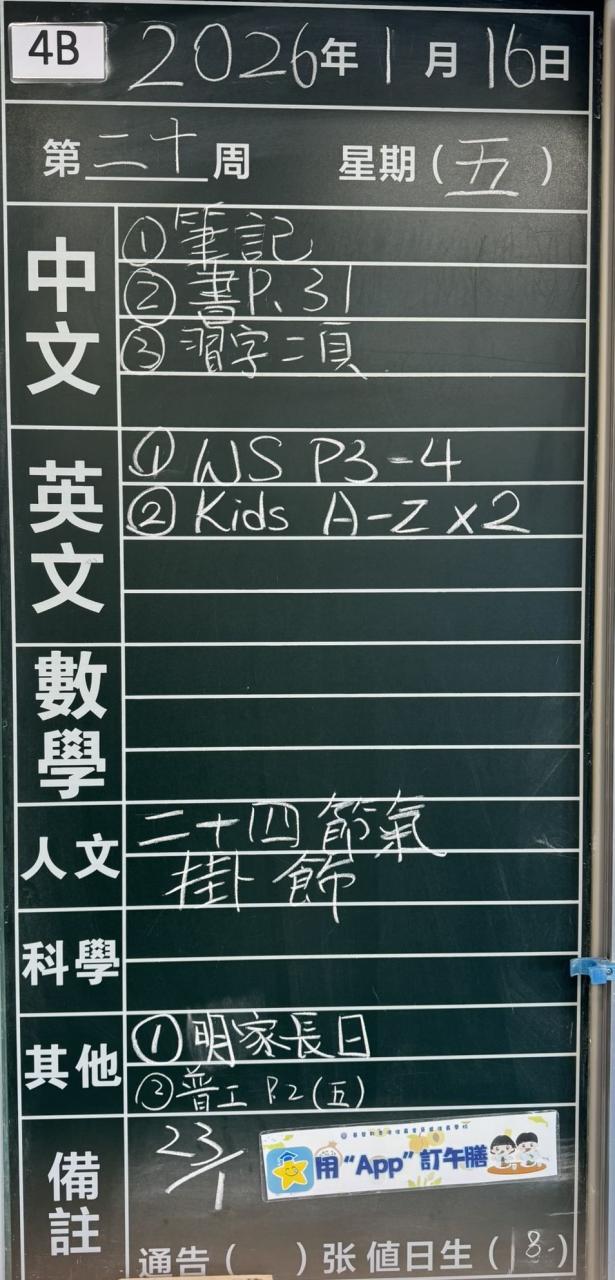 4B 2026年1月16日
第二十周 星期(五)
中文
①筆記
②書P.31
③習字二頁
英文
① WS P3-4
② Kids A-Z x2
數學
人文
二十四節氣
掛飾
科學
其他
①明家長日
②普工 P.2(五)
備註
23/1
用“App”訂午膳
通告( )张 值日生(18.)